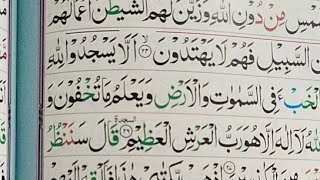 مِنْ دُوْنِ اللّٰهِ وَزَيَّنَ لَهُمُ الشَّيْطٰنُ اَعْمَالَهُمْ
السَّبِيْلِ فَهُمْ لَا يَهْتَدُوْنَ ۙ﴿۲۴﴾ اَلَّا يَسْجُدُوْا لِلّٰهِ
الْخَبْءَ فِى السَّمٰوٰتِ وَالْاَرْضِ وَيَعْلَمُ مَا تُخْفُوْنَ وَ
اَللّٰهُ لَآ اِلٰهَ اِلَّا هُوَ رَبُّ الْعَرْشِ الْعَظِيْمِ ﴿۲۶﴾ السجدة قَالَ سَنَنْظُرُ